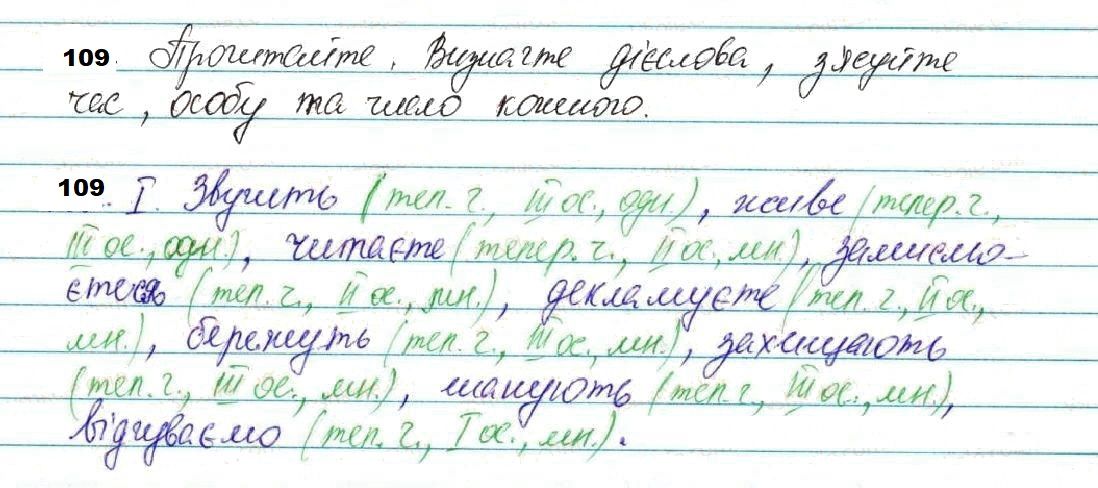 109 Прочитайте. Визначте дієслова, з'ясуйте
час, особу та число кожного.
109 I. Звучить (теп. ч., III ос., одн.), живе (тепер. ч.,
III ос., одн.), читаєте (тепер. ч., II ос., мн.), замислю-
єтеся (теп. ч., II ос., мн.), декламуєте (теп. ч., II ос.,
мн.), бережуть (теп. ч., III ос., мн.), захищають
(теп. ч., III ос., мн.), шанують (теп. ч., III ос., мн.),
відчуваємо (теп. ч., I ос., мн.).